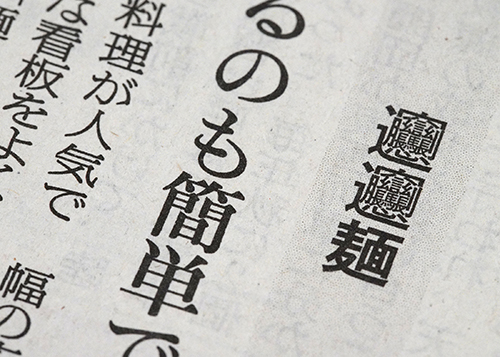 𰻞𰻞麺
るのも簡単で
料理が人気で
な看板をよく
幅の